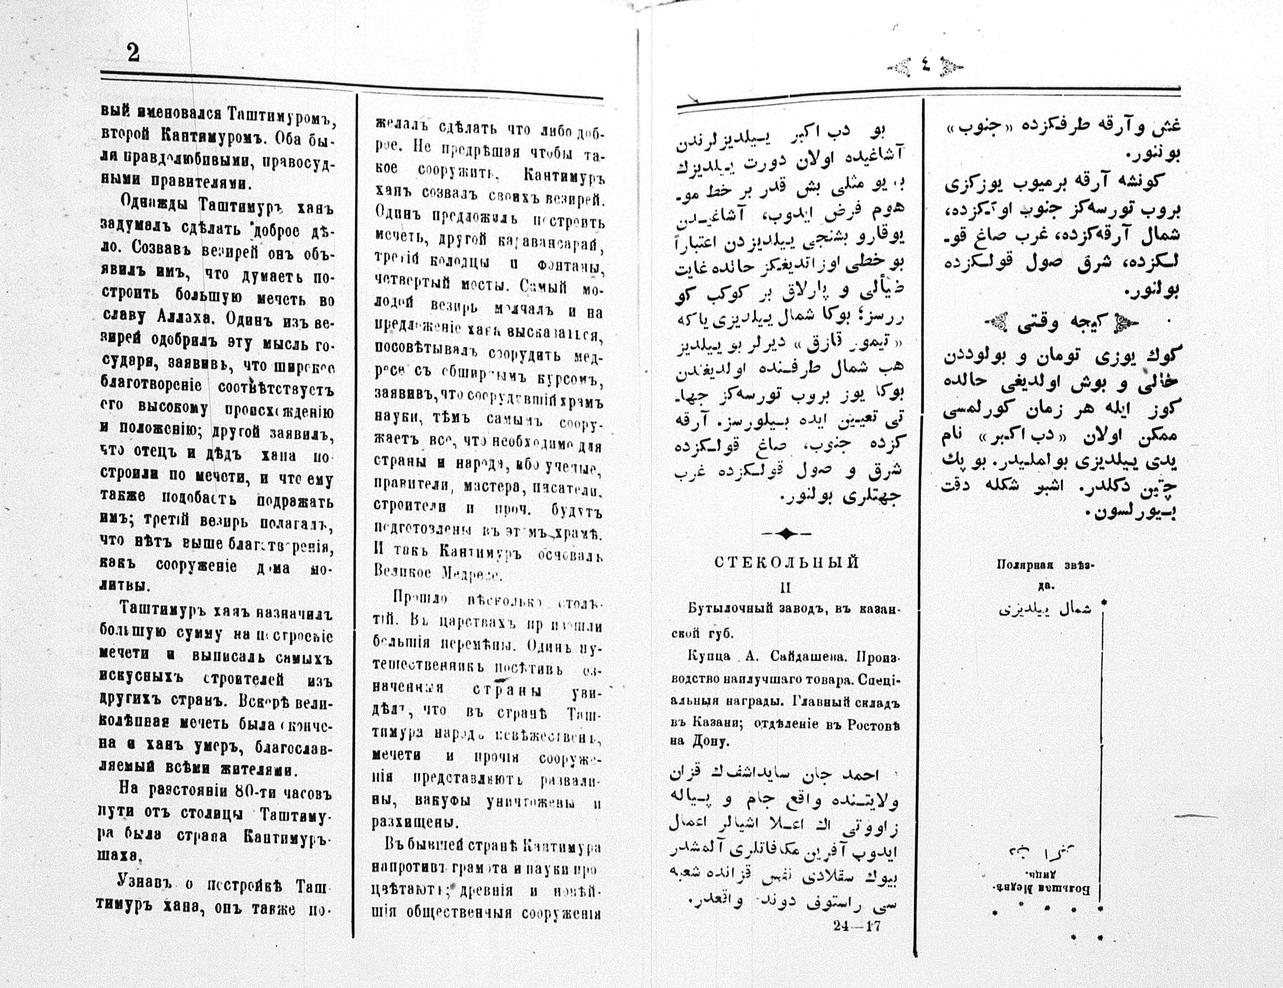 2
вый именовался Таштимуромъ,
второй Кантимуромъ. Оба бы-
ли правдолюбивыми, правосуд-
ными правителями.
Однажды Таштимуръ ханъ
задумалъ сдѣлать доброе дѣ-
ло. Созвавъ везирей онъ объ-
явилъ имъ, что думаетъ по-
строить большую мечеть во
славу Аллаха. Одинъ изъ ве-
зирей одобрилъ эту мысль го-
сударя, заявивъ, что широкое
благотвореніе соотвѣтствуетъ
его высокому происхожденію
и положенію; другой заявилъ,
что отецъ и дѣдъ хана по-
строили по мечети, и что ему
также подобаетъ подражать
имъ; третій везирь полагалъ,
что нѣтъ выше благотворенія,
какъ сооруженіе дома мо-
литвы.
Таштимуръ ханъ назначилъ
большую сумму на построеніе
мечети и выписалъ самыхъ
искусныхъ строителей изъ
другихъ странъ. Вскорѣ вели-
колѣпная мечеть была окончe-
на и ханъ умеръ, благослав-
ляемый всѣми жителями.
На разстояніи 80-ти часовъ
пути отъ столицы Таштиму-
ра была страна Кантимуръ-
шаха.
Узнавъ о постройкѣ Таш-
тимуръ хана, онъ также по-
желалъ сдѣлать что либо доб-
рое. Не предрѣшая чтобы та-
кое соорудить, Кантимуръ
ханъ созвалъ своихъ везирей.
Одинъ предложилъ построить
мечеть, другой каравансарай,
третій колодцы и фонтаны,
четвертый мосты. Самый мо-
лодой везирь молчалъ и на
предложеніе хана высказаться,
посовѣтывалъ соорудить мед-
ресе съ обширнымъ курсомъ,
заявивъ, что соорудившій храмъ
науки, тѣмъ самымъ соору-
жаетъ все, что необходимо для
страны и народа, ибо ученые,
правители, мастера, писатели,
строители и проч. будутъ
подготовлены въ этомъ храмѣ.
И такъ Кантимуръ основалъ
Великое Медресе.
Прошло нѣсколько столѣ-
тій. Въ царствахъ произошли
большія перемѣны. Одинъ пу-
тешественникъ посѣтивъ оз-
наченныя страны уви-
дѣлъ, что въ странѣ Таш-
тимура народъ невѣжественъ,
мечети и прочія сооруже-
нія представляютъ развали-
ны, вакуфы уничтожены и
расхищены.
Въ бывшей странѣ Кантимура
напротивъ грамота и науки про-
цвѣтаютъ; древнія и новѣй-
шія общественныя сооруженія
٤
بو دب اكبر ييلديزلرندن
آشاغيده اولان دورت ييلديزك
بويو مثلى بش قدر بر خط مو-
هوم فرض ايدوب، آشاغيدن
يوقارو بشنجى ييلديزدن اعتباراً
بو خطى اوزاتديغكز حالده غايت
ضيالى و پارلاق بر كوكب كو
ررسز؛ بوكا شمال ييلديزى ياكه
«تيمور قازق» ديرلر بو ييلديز
هب شمال طرفنده اولديغندن
بوكا يوز بروب تورسه‌كز جها-
تى تعيين ايده بيلورسز. آرقه
كزده جنوب، صاغ قولكزده
شرق و صول قولكزده غرب
جهتلرى بولنور.
СТЕКОЛЬНЫЙ
И
Бутылочный заводъ, въ казан-
ской губ.
Купца А. Сайдашева. Произ-
водство наилучшаго товара. Спеці-
альныя награды. Главный складъ
въ Казани; отдѣленіе въ Ростовѣ
на Дону.
احمد جان سايداشفك قزان
ولايتنده واقع جام و پياله
زاووتى اك اعلا اشيالر اعمال
ايدوب آفرين مكافاتلرى آلمشدر
بيوك سقلادى نفس قزانده شعبه
سى راستوف دوند واقعدر.
24—17
غش و آرقه طرفكزده «جنوب»
بولنور.
كونشه آرقه برميوب يوزكزى
بروب تورسه‌كز جنوب اوككزده،
شمال آرقه‌كزده، غرب صاغ قو-
لكزده، شرق صول قولكزده
بولنور.
كيجه وقتى
كوك يوزى تومان و بولوددن
خالى و بوش اولديغى حالده
كوز ايله هر زمان كورلمسى
ممكن اولان «دب اكبر» نام
يدى ييلديزى بولمليدر. بو پك
چتين دكلدر. اشبو شكله دقت
بيورلسون.
Полярная звѣз-
да.
شمال ييلديزى
دب اكبر
Большая Медвѣ-
дица.